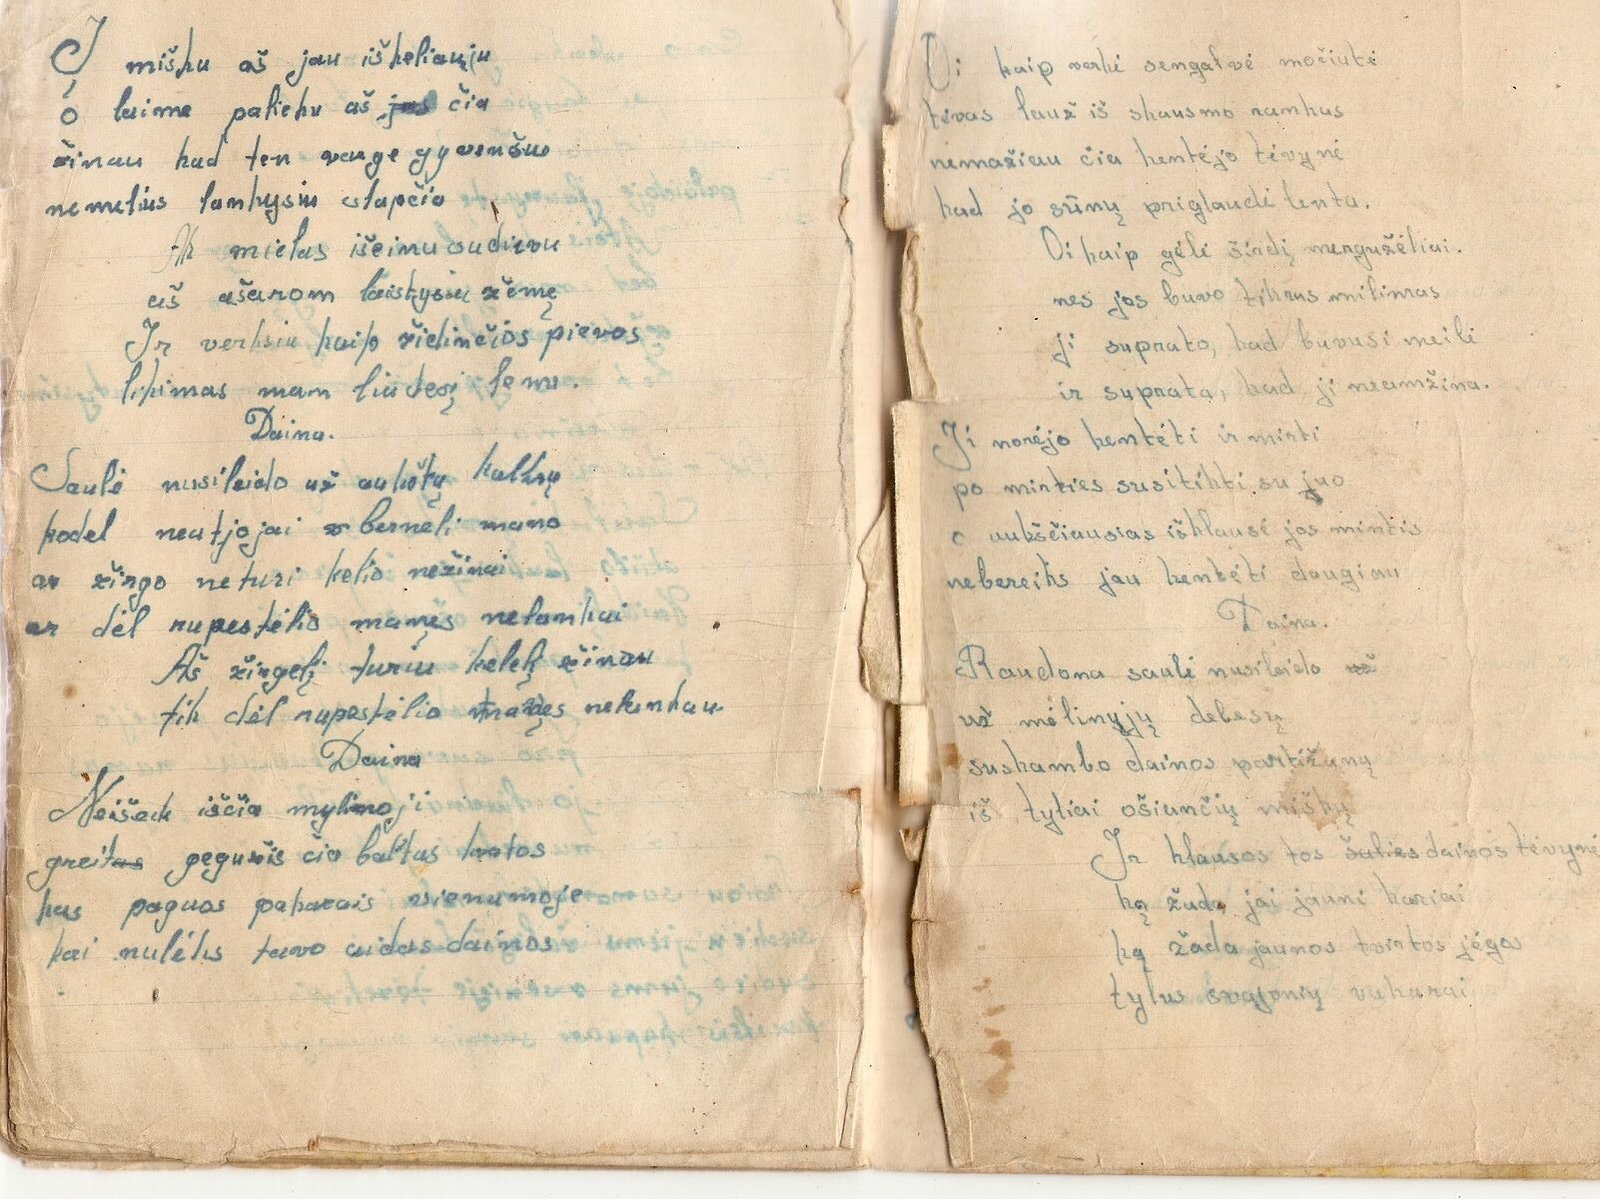 Į mišku aš jau iškeliauju
o laime palieku aš jas čia
žinau kad ten varge gyvenšu
nemelius lankysiu slapčia
Ak mielas išeinu sudievu
aš ašarom laistysiu žemę
Ir verksiu kaip židinčios pievos
likimas man liudesį leme.
Daina.
Saulė nusileido už aukštų kalnų
kodel neatjojai bernėli mano
ar žirgo neturi kelio nežinai
ar dėl rupestėlio mamęs nelankai
Aš žirgelį turiu kelelį žinau
tik dėl rupestėlio mamęs nelankau.
Daina
Neišeik iščia mylimoji
greitas pegužis čia baltas
kas paguos pakarais vienumoje
kai nulėks tavo aidas dainos
Oi kaip verkė sengalvė močiutė
tėvas lauž iš skausmo rankas
nemažiau čia kentėjo tėvynė
kad jo sūnų priglaudė lenta.
Oi kaip gėlė širdį mergužėliai.
nes jos buvo tikras milimas
ji suprato, kad buvusi meilė
ir suprata, kad ji neamžina.
Ji norėjo kentėti ir mirti
po mirties susitikti su juo
o aukščiausias išklausė jos mintis
nebereiks jau kentėti daugiau
Daina.
Raudona saulė nusileido už
už mėlinųjų debesų
suskambo dainos partižanų
iš tyliai ošiančių miškų
Ir klausos tos šalies dainos tėvynė
ką žada jai jauni kariai
ką žada jaunos tvirtos jėgos
tylus svajonių vakarai